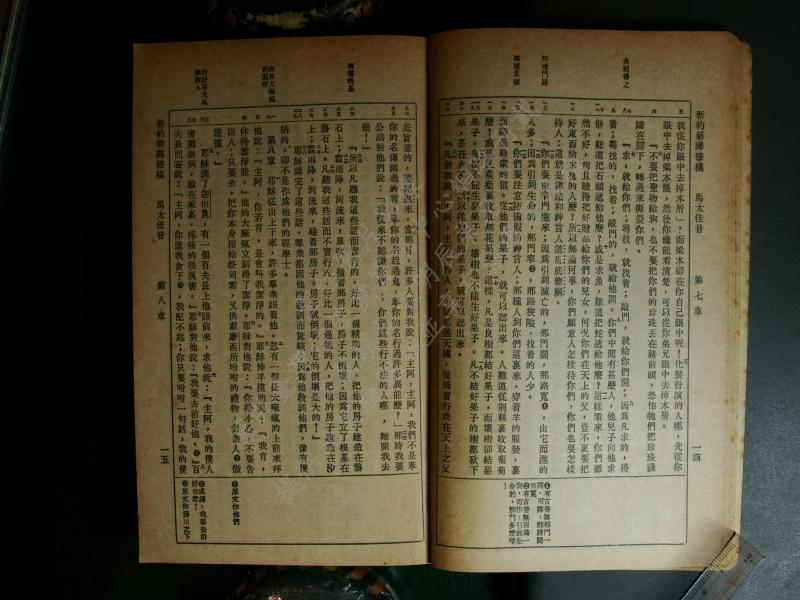 新約新譯修稿　馬太佳音　第七章　一四
求則得之
兩種門路
兩種果樹
我從你眼中去掉木屑』？而梁木卻在你自己眼中呢！化裝扮演的人哪，先從你
眼中去掉梁木罷，然後你纔能看清楚，可以從你弟兄眼中去掉木屑。
『不要把聖物給狗，也不要把你們的珍珠丟在豬前頭，恐怕牠們把珍珠踐
踏在腳下，轉過來撕裂你們。
『求，就給你們；尋找，就找着；敲門，就給你們開；因爲凡求的，得
着；尋找的，找着；敲門的，就給他開。你們中間有甚麼人，他兒子向他求
餅，難道把石頭遞給他麼？或是求魚，難道把蛇遞給他麼？這樣看來，你們雖
然不好，尚且曉得把好贈品給你們的兒女，何況你們在天上的父，豈不更要把
好東西給求他的人麼？所以無論何事，你們願意人怎樣待你們，你們也要怎樣
待人；這就是律法和神言人
『你們要由窄門進來；因爲引到滅亡的，那門闊，那路寬，由它而進的
人多；因爲引到生命的，那門窄，那路狹隘，找着的人少。
『你們要注意防備假的神言人；那種人到你們這裏來，穿着羊的服裝，裏
面卻是勒索的狼。從他們的果子，就可以認出來。人難道從荊棘裏收取葡萄
麼？或是從蒺藜裏收取無花果麼？這樣，凡是良樹都結好果子，而壞樹卻結惡
果子。良樹不能生惡果子，壞樹也不能生好果子。凡不結好果子的樹都砍下
來，丟在火裏。所以從他們的果子，就可以認出來。
『凡對我說：「主阿，主阿」的人，不都進天國，惟獨實行我在天上之父
新約新譯修稿　馬太佳音　第八章　一五
兩種根基
治好百夫長
底旨意的，纔能進來。當那日，許多人要對我說：「主阿，主阿，我們不是奉
你的名傳講過神言，奉你的名趕過鬼，奉你的名行過許多異能麼？」那時我要
公然對他們說：「我從來不認識你們；你們這些行不法的人哪，離開我去
罷！」
『所以凡聽我這些話而實行的，好比一個精明的人，把他的房子建造在磐
石上；霖雨降，河流來，風吹，撞着那房子，房子不倒壞；因爲它立了根基在
磐石上。凡聽我這些話而不實行的，好比一個愚拙的人，把他的房子建造在沙
上；霖雨降，河流來，碰着那房子，房子就倒壞；它的倒壞是大的！』
耶穌講完了這些話，羣衆都因他的教訓而驚駭；因爲他教訓他們，像有權
柄的，卻不是作爲他們的經學士。
第八章　耶穌從山上下來，許多羣衆跟着他。忽有一個長大痲瘋的上前來拜
他說：『主阿，你若肯，是會叫我潔淨的。』耶穌伸手摸他說：『我肯，
你得潔淨罷。』他的大痲瘋立刻得了潔淨。耶穌對他說：『你得小心，不要告
訴人；只要去，把你本身指給祭司看，又供獻摩西所吩咐的禮物，
證據。』
耶穌進了迦伯農，有一個百夫長上他跟前來，求他說：『主阿，我的僕人
害癱瘓病，躺在家裏，疼痛的很厲害。』耶穌對他說：『我要去治好他。』百
夫長回答說：『主阿，你進我舍下，我配不起；你只要吩咐一句話，我的僕